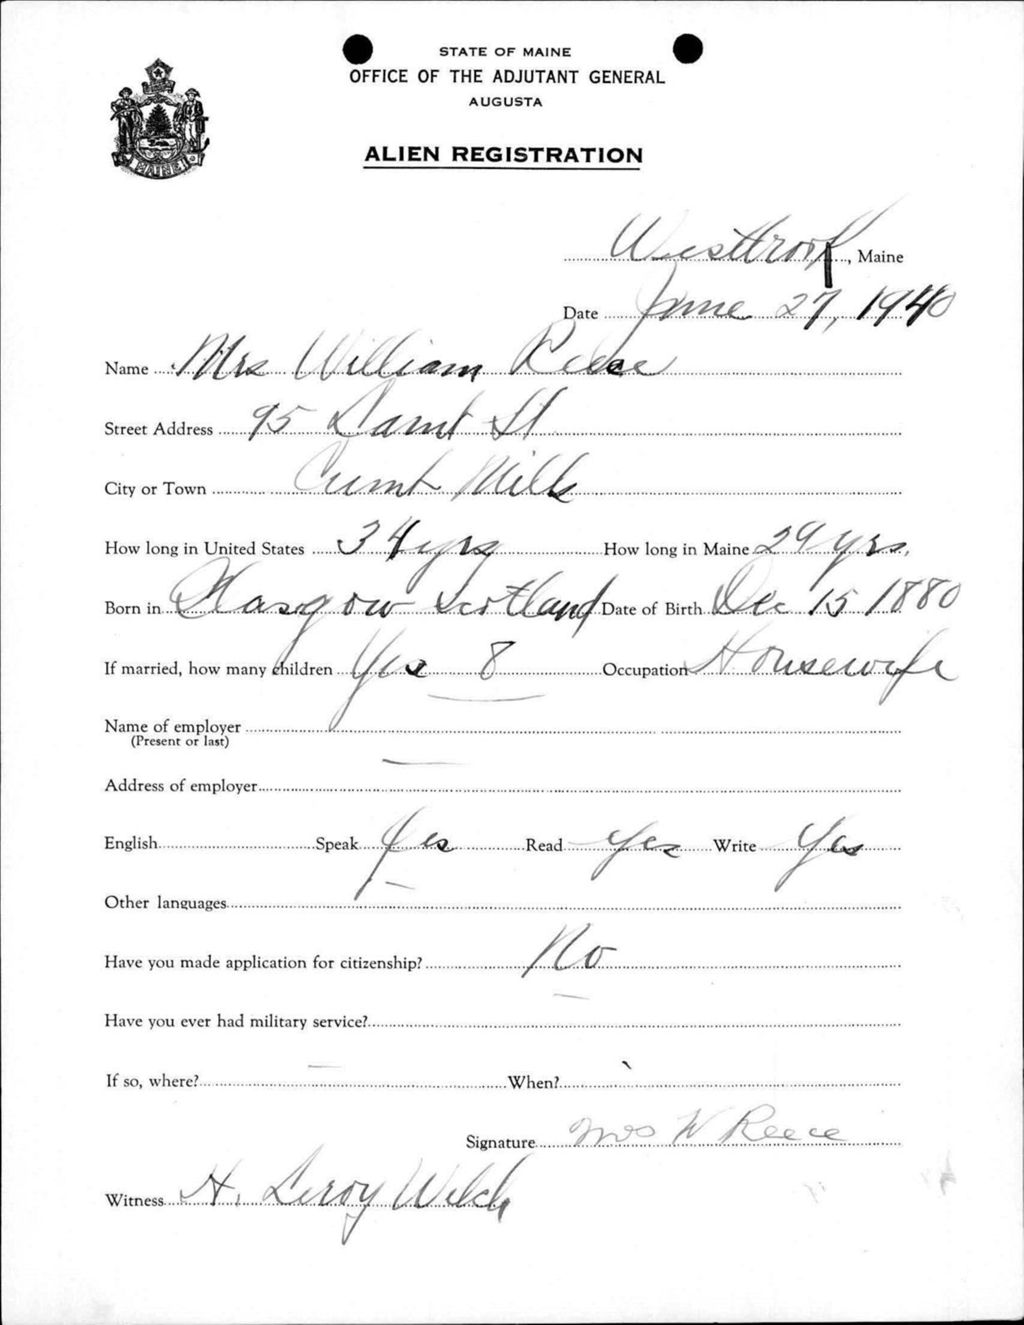 STATE OF MAINE
OFFICE OF THE ADJUTANT GENERAL
AUGUSTA
ALIEN REGISTRATION
MAINE
Westbrook, Maine
Date June 27, 1940
Name Mrs William Reece
Street Address 95 St
City or Town Cumb Mills
How long in United States 34 yrs How long in Maine 29 yrs.
Born in Glasgow Scotland Date of Birth Dec 15 1880
If married, how many children Yes 8 Occupation Housewife
Name of employer
(Present or last)
Address of employer
English Speak Yes Read Yes Write Yes
Other languages
Have you made application for citizenship? No
Have you ever had military service?
If so, where? When?
Signature Mrs W Reece
Witness H. Leroy Welch